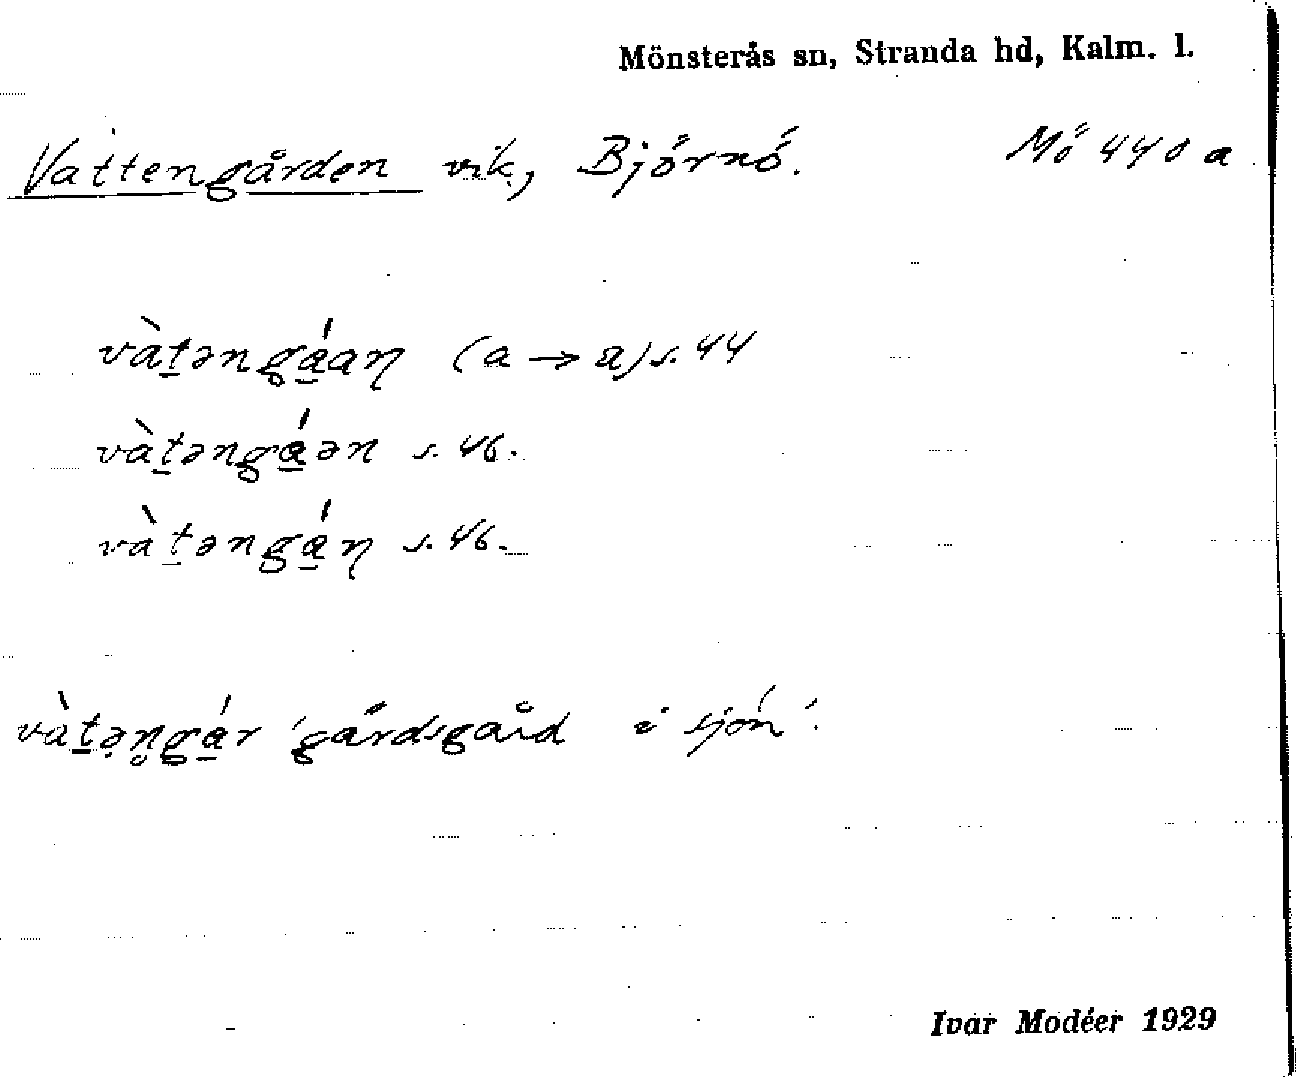 Mönsterås sn, Stranda hd, Kalm. l.
Vattengården vik, Björnö. Mö 440 a
và̀t̠əngá̠aη (a → a) s. 44
vàt̠əngá̠ən s. 46.
vàt̠əngá̠η s. 46.
vàt̠ə̣n̥gá̠r 'gärdsgård i sjön'.
Ivar Modéer 1929